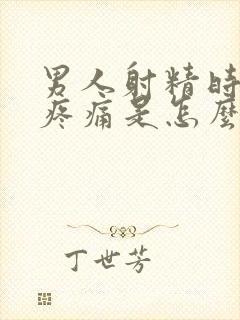 男人射精時
疼痛是怎麼
丁世芳